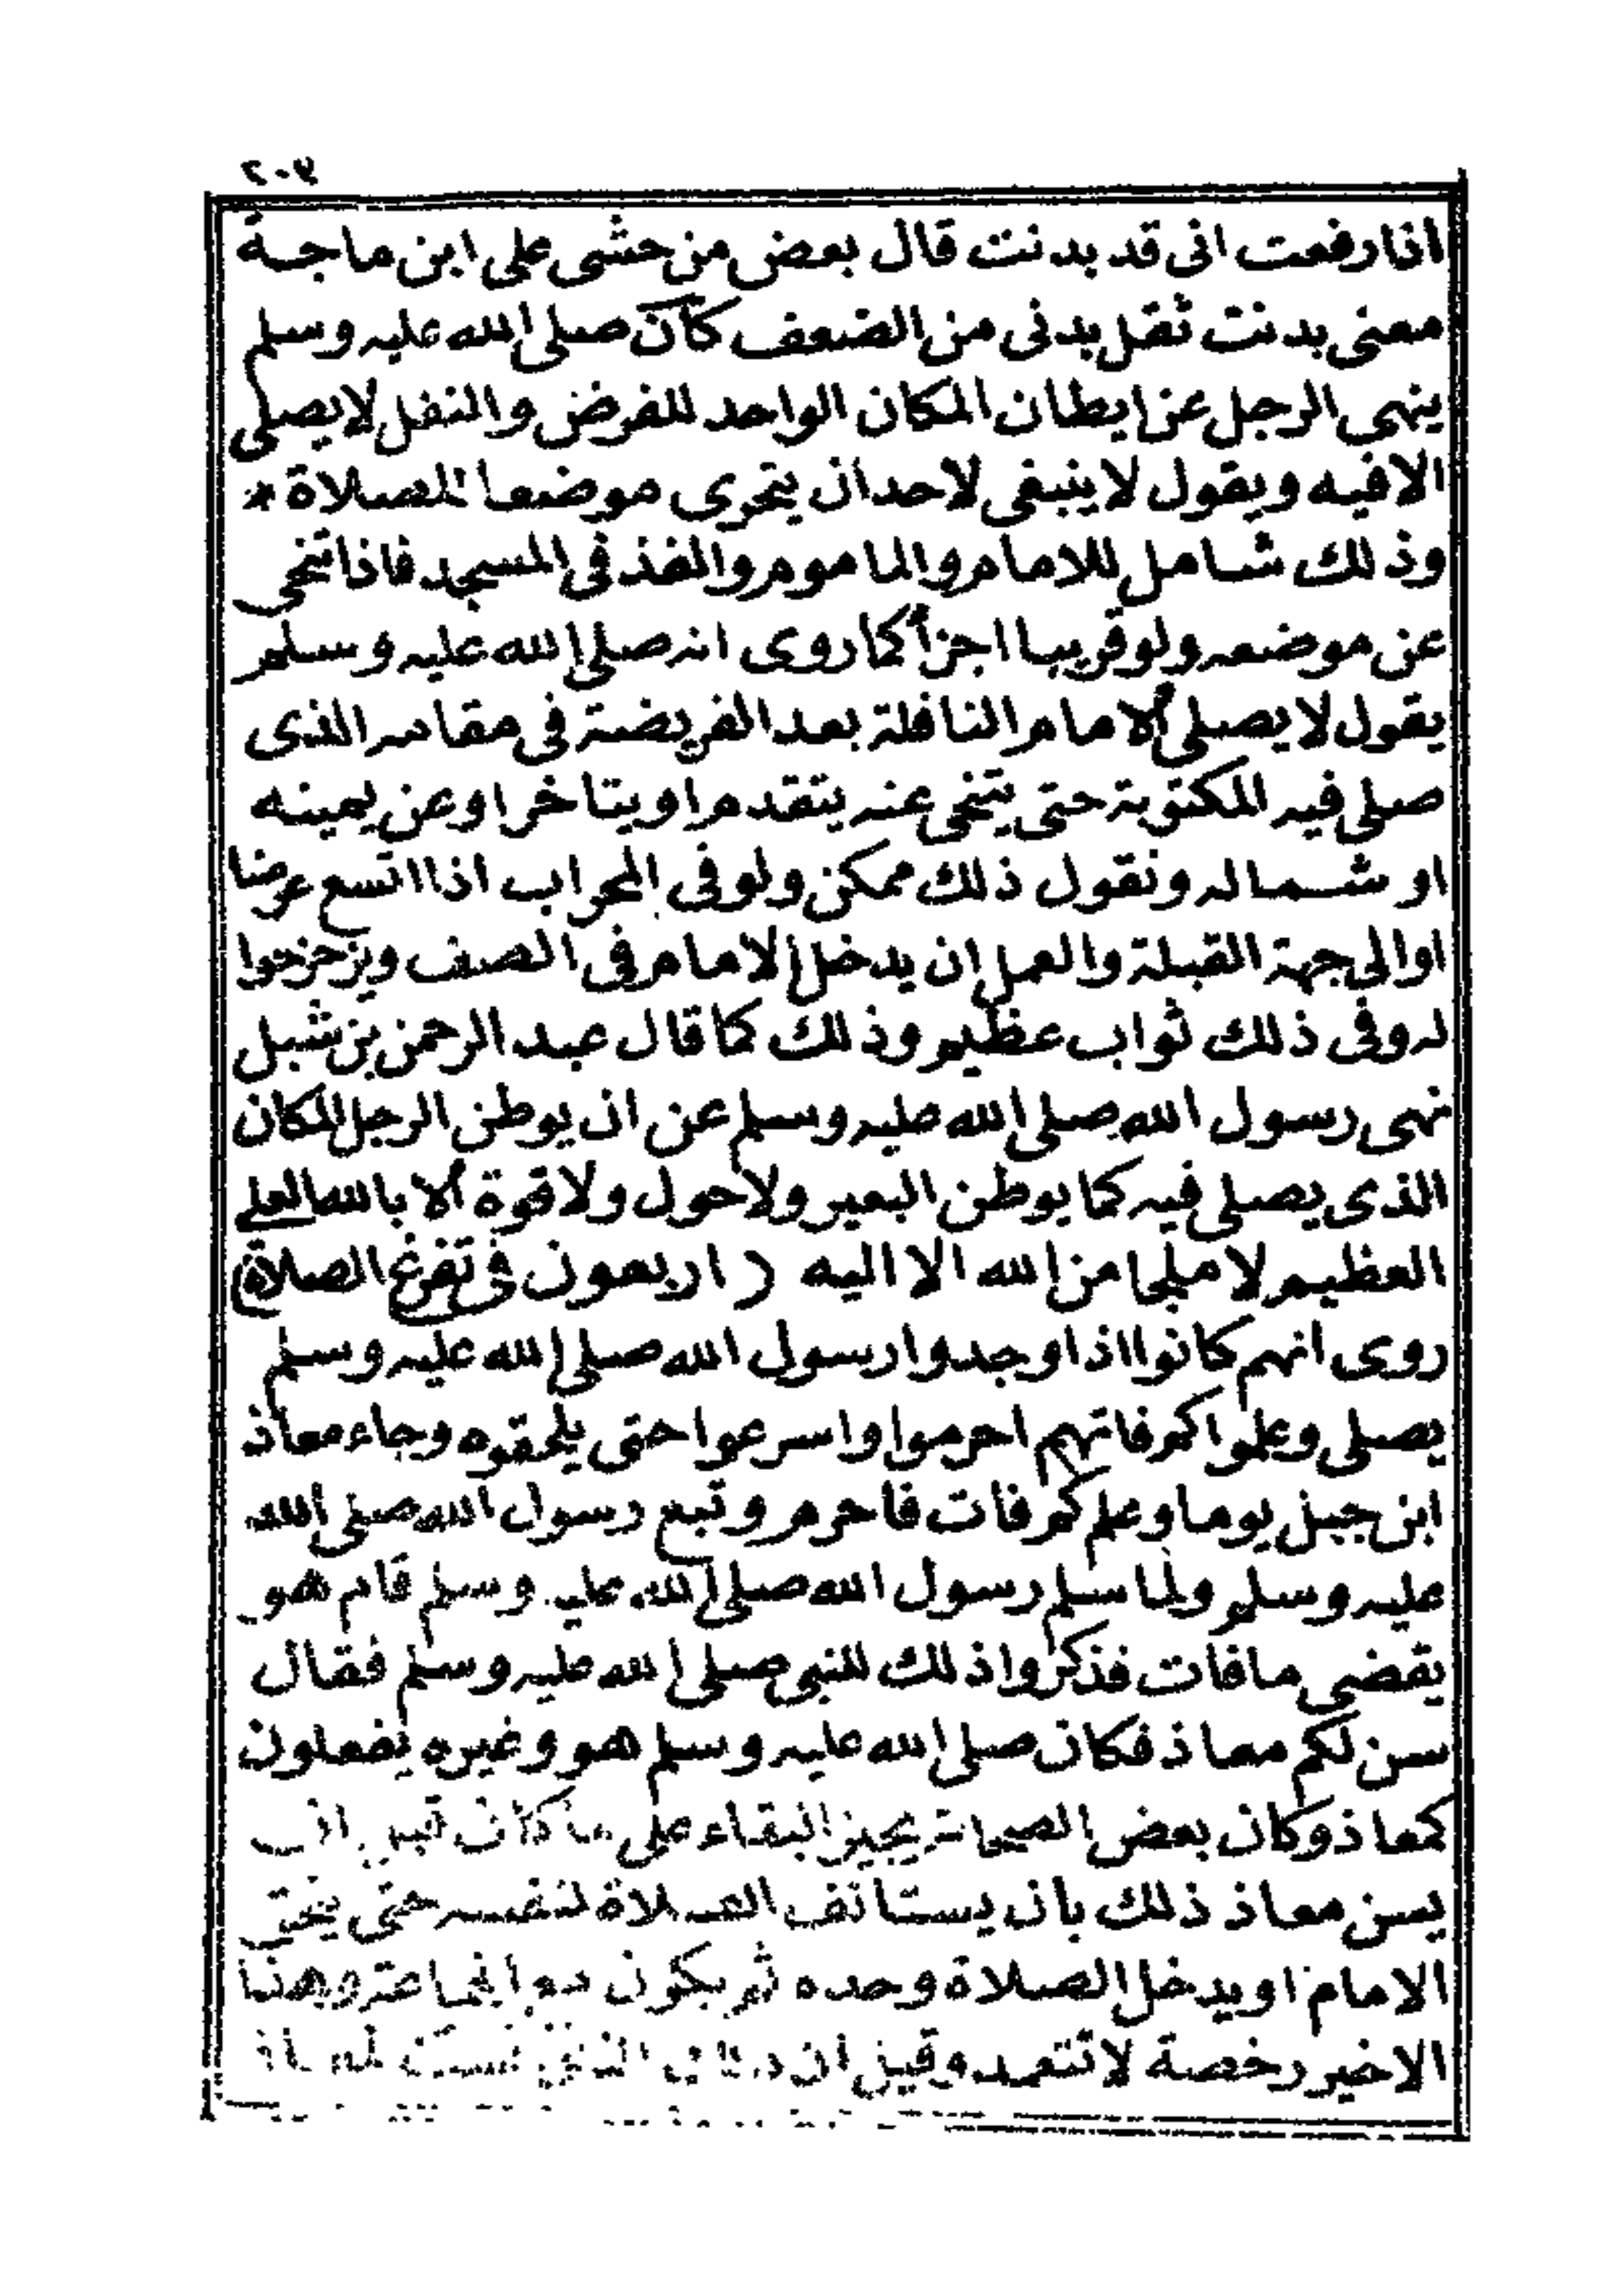 ٢٠٣
اذا رفعت انى قد بدنت قال بعض من حشى على ابن ماجة
معنى بدنت ثقل بدنى من الضعف كان صلى الله عليه وسلم
ينهى الرجل عن ايطان المكان الواحد للفرض والنفل لا يصلى
الا فيه ويقول لا ينبغى لاحد ان يتحرى موضعا للصلاة *
وذلك شامل للامام والماموم والفذ فى المسجد فاذا تنحى
عن موضعه ولو قريبا اجزأ كما روى انه صلى الله عليه وسلم
يقول لا يصلى الامام النافلة بعد الفريضة فى مقامه الذى
صلى فيه المكتوبة حتى يتنحى عنه يتقدم او يتاخر او عن يمينه
او شماله ونقول ذلك ممكن ولو فى المحراب اذا اتسع عرضا
او الى جهة القبلة والعمل ان يدخل الامام فى الصف ويزحزحوا
له وفى ذلك ثواب عظيم وذلك كما قال عبد الرحمن بن شبل
نهى رسول الله صلى الله عليه وسلم عن ان يوطن الرجل المكان
الذى يصلى فيه كما يوطن البعير ولا حول ولا قوة الا بالله العلى
العظيم لا ملجا من الله الا اليه ( اربعون فى تفرغ الصلاة)
روى انهم كانوا اذا وجدوا رسول الله صلى الله عليه وسلم
يصلى وعلموا كم فاتهم احرموا واسرعوا حتى يلحقوه وجاء معاذ
ابن جبل يوما وعلم كم فات فاحرم وتبع رسول الله صلى الله
عليه وسلم ولما سلم رسول الله صلى الله عليه وسلم قام هو
يقضى ما فات فذكروا ذلك للنبى صلى الله عليه وسلم فقال
سن لكم معاذ فكان صلى الله عليه وسلم هو وغيره يفعلون
كمعاذ وكان بعض الصحابة يجيز البقاء على ما كان قبل ان
يسن معاذ ذلك بان يستانف الصلاة لنفسه حتى
الامام او يدخل الصلاة وحده ثم يكون مع الجماعة وهذا
الاخير رخصة لا تتعمد وقيل ان